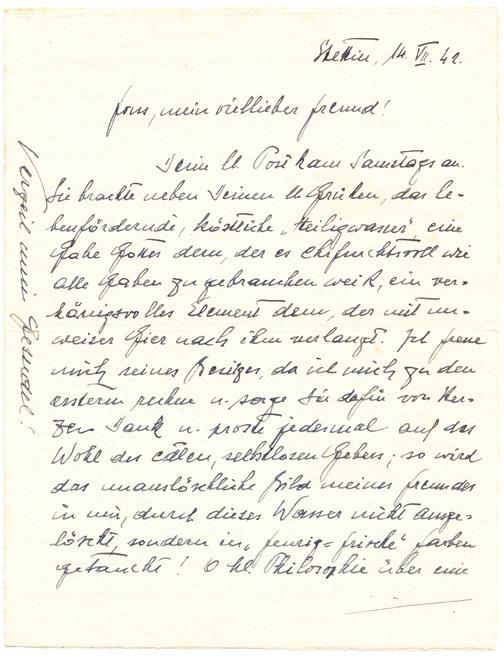 Stettin, 14. VII. 42.
mein viellieber Freund!
Deine l. Post kam Samstags an.
Sie brachte neben Deinen l. Grüßen, das le-
benfördernde, köstliche „Heiligwasser", eine
Gabe Gottes dem, der es ehrfurchtsvoll wie
alle Gaben zu gebrauchen weiß, ein ver-
hängnisvolles Element dem, der mit un-
weiser Gier nach ihm verlangt. Ich freue
mich seines Besitzes, da ich mich zu den
ersteren rechne u. sage Dir dafür von Her-
zen Dank u. proste jedesmal auf das
Wohl des edlen, selbstlosen Gebers; so wird
das unauslöschliche Bild meines Freundes
in mir, durch dieses Wasser nicht ausge-
löscht, sondern in „feurig=frische" Farben
getaucht! O hl. Philosophie über eine
Verzeih mein Geschmier!